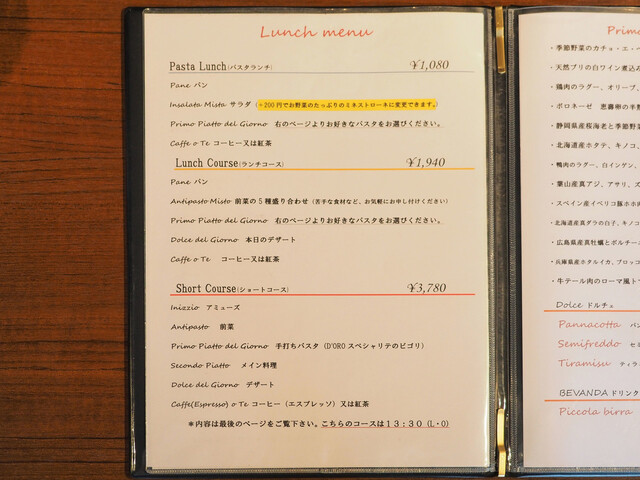 Lunch menu
Pasta Lunch(パスタランチ) ¥1,080
Pane パン
Insalata Mista サラダ(+200円でお野菜のたっぷりのミネストローネに変更できます。
Primo Piatto del Giorno 右のページよりお好きなパスタをお選びください。
Caffe o Te コーヒー又は紅茶
Lunch Course(ランチコース) ¥1,940
Pane パン
Antipasto Misto 前菜の5種盛り合わせ(苦手な食材など、お気軽にお申し付けください)
Primo Piatto del Giorno 右のページよりお好きなパスタをお選びください。
Dolce del Giorno 本日のデザート
Caffe o Te コーヒー又は紅茶
Short Course(ショートコース) ¥3,780
Inizzio アミューズ
Antipasto 前菜
Primo Piatto del Giorno 手打ちパスタ(D'OROスペシャリテのピゴリ)
Secondo Piatto メイン料理
Dolce del Giorno デザート
Caffe(Espresso) o Te コーヒー(エスプレッソ)又は紅茶
*内容は最後のページをご覧下さい。こちらのコースは13:30(L・O)
Primo
・季節野菜のカチョ・エ・
・天然ブリの白ワイン煮込み
・鶏肉のラグー、オリーブ、
・ボロネーゼ 恵壽卵の半熟
・静岡県産桜海老と季節野菜
・北海道産ホタテ、キノコ、
・鴨肉のラグー、白インゲン、
・葉山産真アジ、アサリ、
・スペイン産イベリコ豚ホホ肉
・北海道産真ダラの白子、キノコ
・広島県産真牡蠣とポルチー
・兵庫県産ホタルイカ、ブロッコ
・牛テール肉のローマ風ト
Dolce ドルチェ
Pannacotta パン
Semifreddo セミ
Tiramisu ティラ
BEVANDA ドリンク
Piccola birra